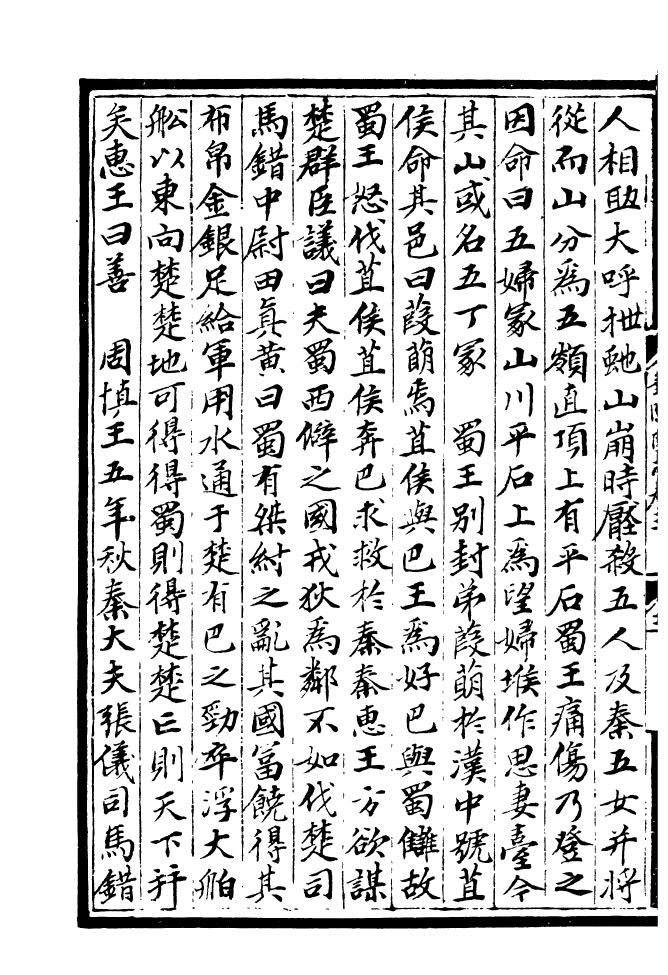 人相助大呼抴虵山崩時壓殺五人及秦五女并將
從而山分爲五嶺直頂上有平石蜀王痛傷乃登之
因命曰五婦冢山川平石上爲望婦堠作思妻臺今
其山或名五丁冢　蜀王别封弟葭萌於漢中號苴
侯命其邑曰葭萌焉苴侯與巴王爲好巴與蜀讎故
蜀王怒伐苴侯苴侯奔巴求救於秦秦惠王方欲謀
楚群臣議曰夫蜀西僻之國戎狄爲鄰不如伐楚司
馬錯中尉田真黄曰蜀有桀紂之亂其國富饒得其
布帛金銀足給軍用水通于楚有巴之勁卒浮大舶
舩以東向楚楚地可得得蜀則得楚楚亡則天下并
矣惠王曰善　周慎王五年秋秦大夫張儀司馬錯